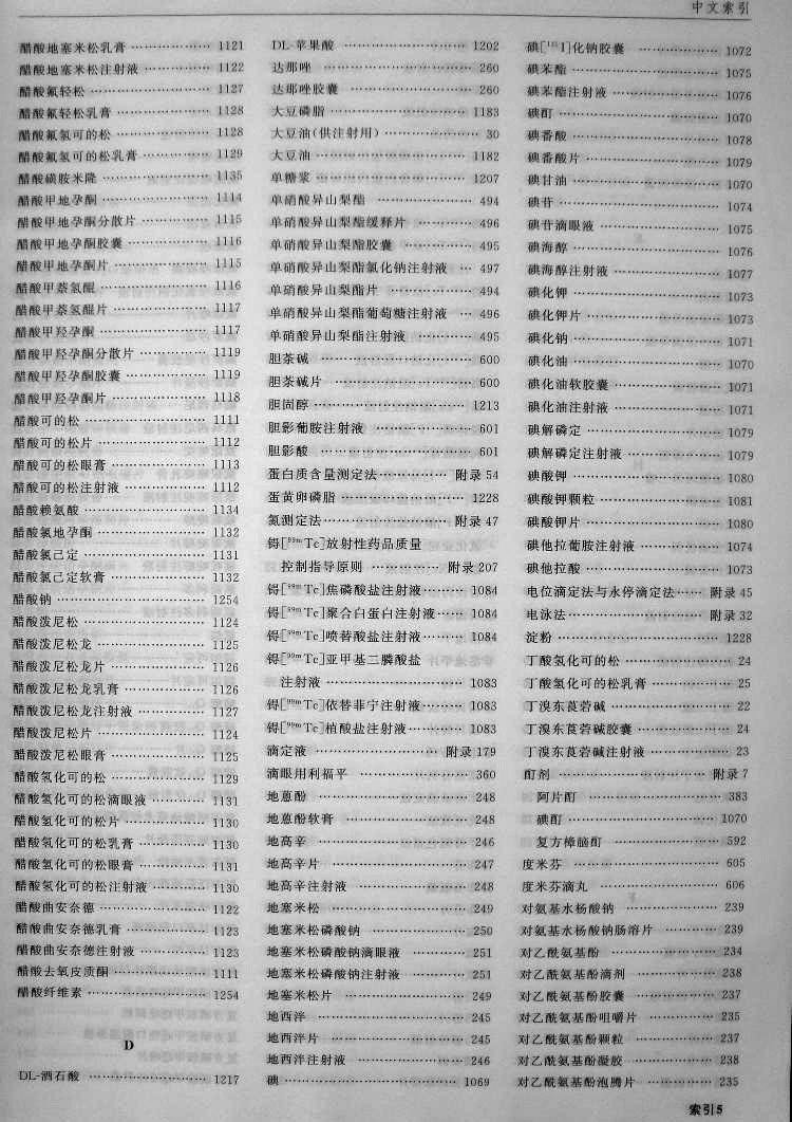 中文索引
醋酸地塞米松乳膏 ………………… 1121
醋酸地塞米松注射液 ……………… 1122
醋酸氟轻松 ………………………… 1127
醋酸氟轻松乳膏 …………………… 1128
醋酸氟氢可的松 …………………… 1128
醋酸氟氢可的松乳膏 ……………… 1129
醋酸磺胺米隆 ……………………… 1135
醋酸甲地孕酮 ……………………… 1114
醋酸甲地孕酮分散片 ……………… 1115
醋酸甲地孕酮胶囊 ………………… 1116
醋酸甲地孕酮片 …………………… 1115
醋酸甲萘氢醌 ……………………… 1116
醋酸甲萘氢醌片 …………………… 1117
醋酸甲羟孕酮 ……………………… 1117
醋酸甲羟孕酮分散片 ……………… 1119
醋酸甲羟孕酮胶囊 ………………… 1119
醋酸甲羟孕酮片 …………………… 1118
醋酸可的松 ………………………… 1111
醋酸可的松片 ……………………… 1112
醋酸可的松眼膏 …………………… 1113
醋酸可的松注射液 ………………… 1112
醋酸赖氨酸 ………………………… 1134
醋酸氯地孕酮 ……………………… 1132
醋酸氯己定 ………………………… 1131
醋酸氯己定软膏 …………………… 1132
醋酸钠 ……………………………… 1254
醋酸泼尼松 ………………………… 1124
醋酸泼尼松龙 ……………………… 1125
醋酸泼尼松龙片 …………………… 1126
醋酸泼尼松龙乳膏 ………………… 1126
醋酸泼尼松龙注射液 ……………… 1127
醋酸泼尼松片 ……………………… 1124
醋酸泼尼松眼膏 …………………… 1125
醋酸氢化可的松 …………………… 1129
醋酸氢化可的松滴眼液 …………… 1131
醋酸氢化可的松片 ………………… 1130
醋酸氢化可的松乳膏 ……………… 1130
醋酸氢化可的松眼膏 ……………… 1131
醋酸氢化可的松注射液 …………… 1130
醋酸曲安奈德 ……………………… 1122
醋酸曲安奈德乳膏 ………………… 1123
醋酸曲安奈德注射液 ……………… 1123
醋酸去氧皮质酮 …………………… 1111
醋酸纤维素 ………………………… 1254
D
DL-酒石酸 ………………………… 1217
DL-苹果酸 ………………………… 1202
达那唑 ……………………………… 260
达那唑胶囊 ………………………… 260
大豆磷脂 …………………………… 1183
大豆油(供注射用) ………………… 30
大豆油 ……………………………… 1182
单糖浆 ……………………………… 1207
单硝酸异山梨酯 …………………… 494
单硝酸异山梨酯缓释片 …………… 496
单硝酸异山梨酯胶囊 ……………… 495
单硝酸异山梨酯氯化钠注射液 … 497
单硝酸异山梨酯片 ………………… 494
单硝酸异山梨酯葡萄糖注射液 … 496
单硝酸异山梨酯注射液 …………… 495
胆茶碱 ……………………………… 600
胆茶碱片 …………………………… 600
胆固醇 ……………………………… 1213
胆影葡胺注射液 …………………… 601
胆影酸 ……………………………… 601
蛋白质含量测定法 …………… 附录 54
蛋黄卵磷脂 ………………………… 1228
氮测定法 ……………………… 附录 47
锝[99mTc]放射性药品质量
控制指导原则 ………………… 附录 207
锝[99mTc]焦磷酸盐注射液 ……… 1084
锝[99mTc]聚合白蛋白注射液 …… 1084
锝[99mTc]喷替酸盐注射液 ……… 1084
锝[99mTc]亚甲基二膦酸盐
注射液 ……………………………… 1083
锝[99mTc]依替菲宁注射液 ……… 1083
锝[99mTc]植酸盐注射液 ………… 1083
滴定液 ………………………… 附录 179
滴眼用利福平 ……………………… 360
地蒽酚 ……………………………… 248
地蒽酚软膏 ………………………… 248
地高辛 ……………………………… 246
地高辛片 …………………………… 247
地高辛注射液 ……………………… 248
地塞米松 …………………………… 249
地塞米松磷酸钠 …………………… 250
地塞米松磷酸钠滴眼液 …………… 251
地塞米松磷酸钠注射液 …………… 251
地塞米松片 ………………………… 249
地西泮 ……………………………… 245
地西泮片 …………………………… 245
地西泮注射液 ……………………… 246
碘 …………………………………… 1069
碘[131I]化钠胶囊 ………………… 1072
碘苯酯 ……………………………… 1075
碘苯酯注射液 ……………………… 1076
碘酊 ………………………………… 1070
碘番酸 ……………………………… 1078
碘番酸片 …………………………… 1079
碘甘油 ……………………………… 1070
碘苷 ………………………………… 1074
碘苷滴眼液 ………………………… 1075
碘海醇 ……………………………… 1076
碘海醇注射液 ……………………… 1077
碘化钾 ……………………………… 1073
碘化钾片 …………………………… 1073
碘化钠 ……………………………… 1071
碘化油 ……………………………… 1070
碘化油软胶囊 ……………………… 1071
碘化油注射液 ……………………… 1071
碘解磷定 …………………………… 1079
碘解磷定注射液 …………………… 1079
碘酸钾 ……………………………… 1080
碘酸钾颗粒 ………………………… 1081
碘酸钾片 …………………………… 1080
碘他拉葡胺注射液 ………………… 1074
碘他拉酸 …………………………… 1073
电位滴定法与永停滴定法 …… 附录 45
电泳法 ………………………… 附录 32
淀粉 ………………………………… 1228
丁酸氢化可的松 …………………… 24
丁酸氢化可的松乳膏 ……………… 25
丁溴东莨菪碱 ……………………… 22
丁溴东莨菪碱胶囊 ………………… 24
丁溴东莨菪碱注射液 ……………… 23
酊剂 …………………………… 附录 7
阿片酊 ……………………………… 383
碘酊 ………………………………… 1070
复方樟脑酊 ………………………… 592
度米芬 ……………………………… 605
度米芬滴丸 ………………………… 606
对氨基水杨酸钠 …………………… 239
对氨基水杨酸钠肠溶片 …………… 239
对乙酰氨基酚 ……………………… 234
对乙酰氨基酚滴剂 ………………… 238
对乙酰氨基酚胶囊 ………………… 237
对乙酰氨基酚咀嚼片 ……………… 235
对乙酰氨基酚颗粒 ………………… 237
对乙酰氨基酚凝胶 ………………… 238
对乙酰氨基酚泡腾片 ……………… 235
索引5